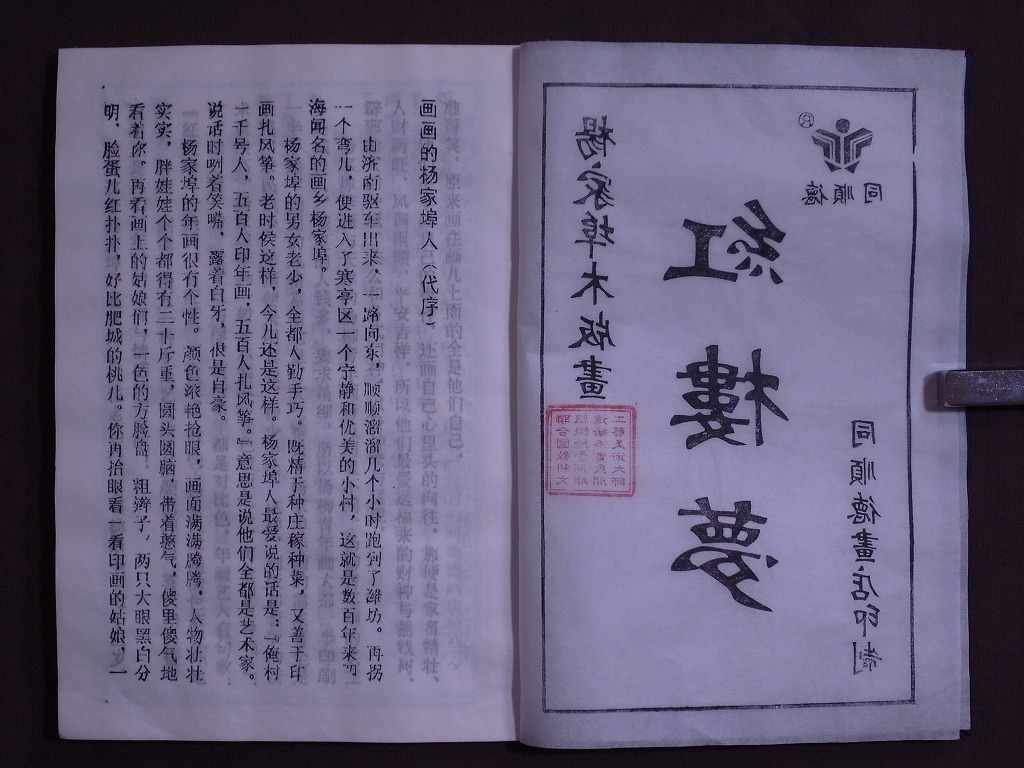 同順德
®
楊家埠木版畫
紅樓夢
同順德畫店印制
画画的杨家埠人（代序）
由济南驱车出来，一路向东，顺顺溜溜几个小时跑到了潍坊。再拐
一个弯儿，便进入了寒亭区一个宁静和优美的小村，这就是数百年来四
海闻名的画乡杨家埠。
杨家埠的男女老少，全都人勤手巧。既精于种庄稼种菜，又善于印
画扎风筝。老时侯这样，今儿还是这样。杨家埠人最爱说的话是：『俺村
一千号人，五百人印年画，五百人扎风筝。』意思是说他们全都是艺术家。
说话时咧着笑嘴，露着白牙，很是自豪。
杨家埠的年画很有个性。颜色泼艳抢眼，画面满满腾腾，人物壮壮
实实，胖娃娃个个都得有二十斤重，圆头圆脑，带着憨气，傻里傻气地
看着你。再看画上的姑娘们，一色的方脸盘，粗辫子，两只大眼黑白分
明，脸蛋儿红扑扑，好比肥城的桃儿。你再抬眼看一看印画的姑娘，一